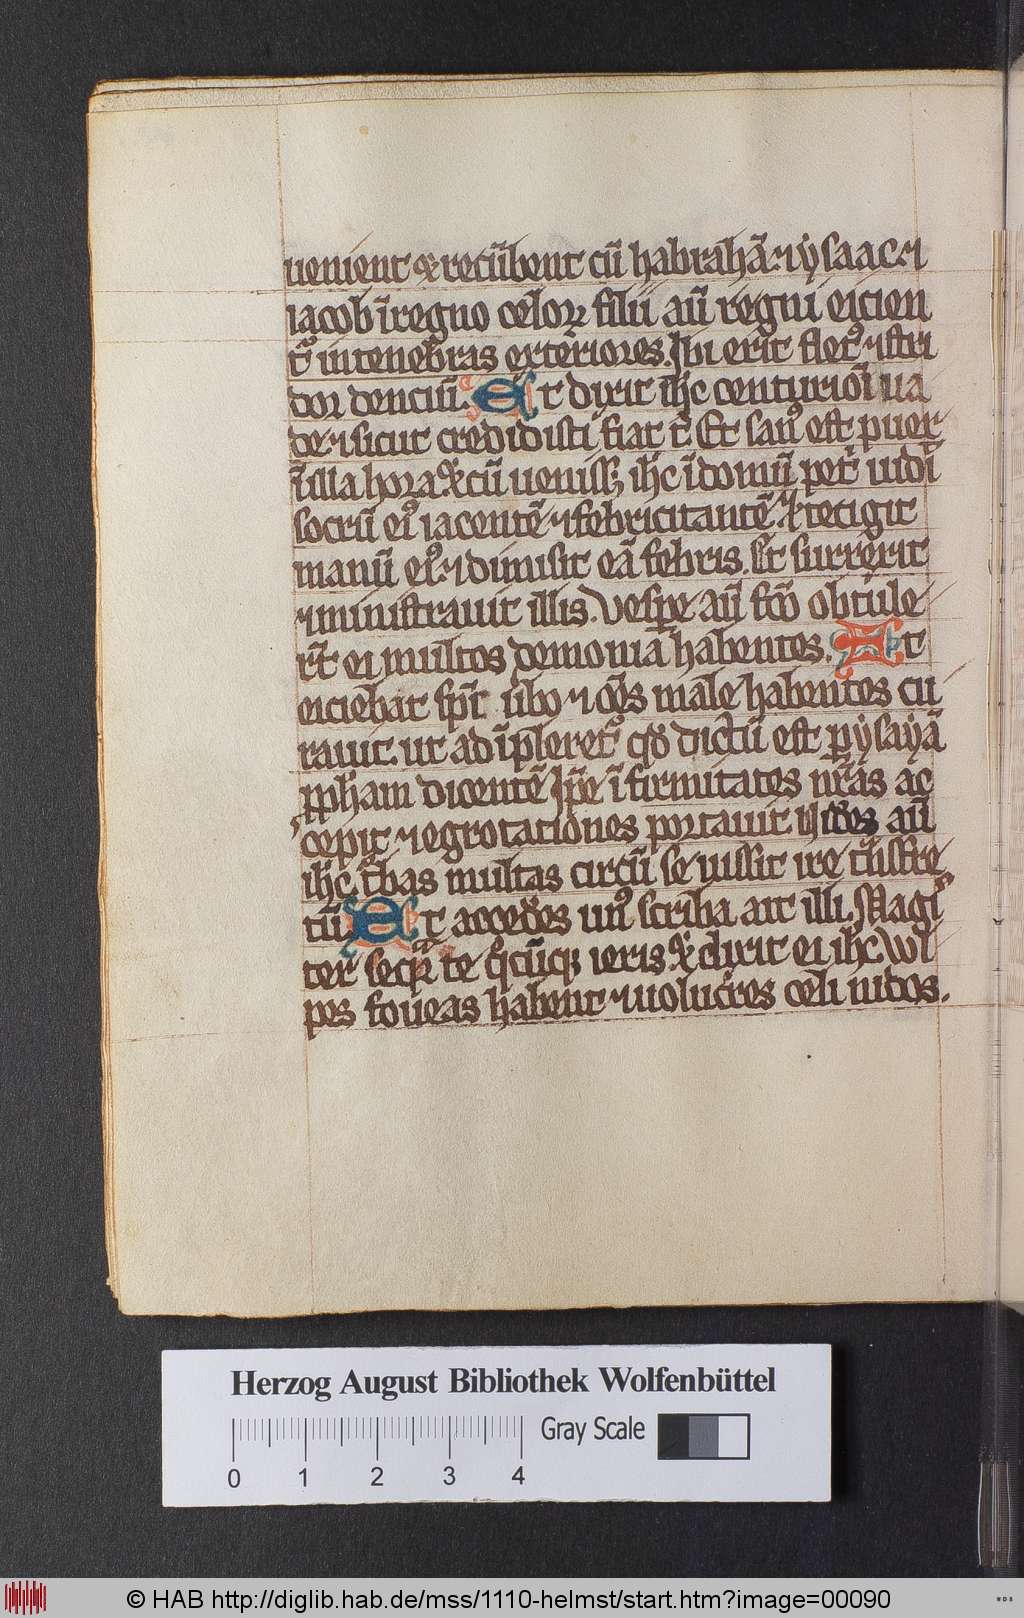 uenient ⁊ recūbent cū habrahā. ⁊ ẏsaac. ⁊
iacob ī regno celoꝝ filii aū regni eicien
tͬ in tenebͣras exteriores. Ibi erit fletꝰ ⁊ stri
dor dentiū. Et dixit ihc centurioī ua
de ⁊ sicut credidisti fiat tͥ. Et sanꝰ est puer
ī illa hora. Et cū uenissꝫ ihc ī domū petͥ uidͥ
socrū eiꝰ iacentē ⁊ febricitantē. Et tetigit
manū eiꝰ. ⁊ dimisit eā febris. Et surrexit
⁊ ministrauit illis. Vesꝑe aū fcō obtule
rt̄ ei multos demonia habentes. Et
eiciebat sp̄c ūbo ⁊ om̄s male habentes cu
rauit. ut adīpleretͬ qđ dictū est ꝑ ẏsaẏā
ꝓpham dicentē Ip̄e īfirmitates nr̄as ac
cepit ⁊ egrotationes portauit uidēs aū
ihc tͬbas multas circū se iussit ire tͣnsfre
tū. Et accedēs unꝰ scriba ait illi. Magiͬ
ter seqͣr te qͦcūqꝫ ieris. Et dixit ei ihc. Wl
pes foueas habent ⁊ uolucͬres celi nidos.
Herzog August Bibliothek Wolfenbüttel
Gray Scale
0 1 2 3 4
© HAB http://diglib.hab.de/mss/1110-helmst/start.htm?image=00090